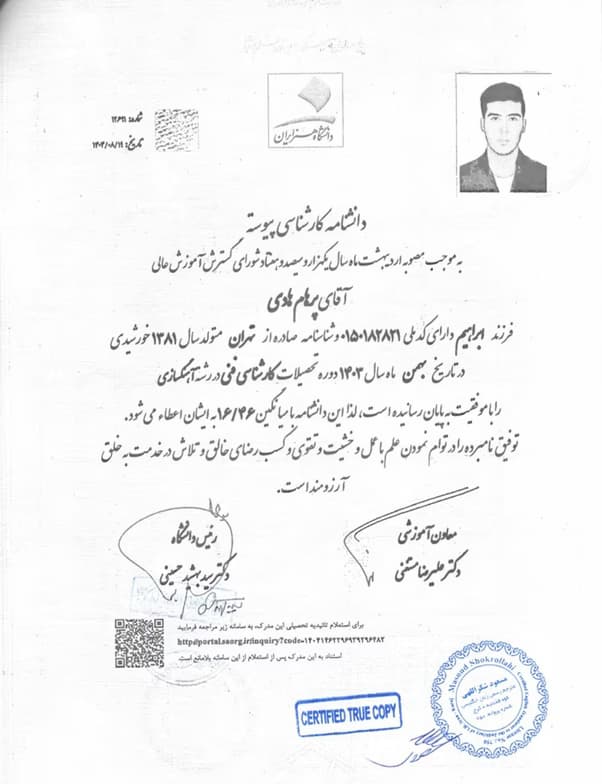 شماره: ۱۲۶۳۱
تاریخ: ۱۴۰۴/۰۸/۱۹
دانشگاه هنر ایران
دانشنامه کارشناسی پیوسته
به موجب مصوبه اردیبهشت ماه سال یکهزار و سیصد و هفتاد شورای گسترش آموزش عالی
آقای پرهام هادی
فرزند ابراهیم دارای کد ملی ۰۱۵۰۱۸۲۸۳۱ و شناسنامه صادره از تهران متولد سال ۱۳۸۱ خورشیدی
در تاریخ بهمن ماه سال ۱۴۰۳ دوره تحصیلات کارشناسی فنی در رشته آهنگسازی
را با موفقیت به پایان رسانیده است، لذا این دانشنامه با میانگین ۱۶/۴۶ به ایشان اعطاء می شود.
توفیق نامبرده را در توام نمودن علم با عمل و خشیت و تقوی و کسب رضای خالق و تلاش در خدمت به خلق
آرزومند است.
معاون آموزشی
دکتر علیرضا مستغنی
رئیس دانشگاه
دکتر سید بهشید حسینی
برای استعلام تائیدیه تحصیلی این مدرک، به سامانه زیر مراجعه فرمایید
استناد به این مدرک پس از استعلام از این سامانه بلامانع است.
CERTIFIED TRUE COPY
Masoud Shokrollahi
مسعود شکراللهی